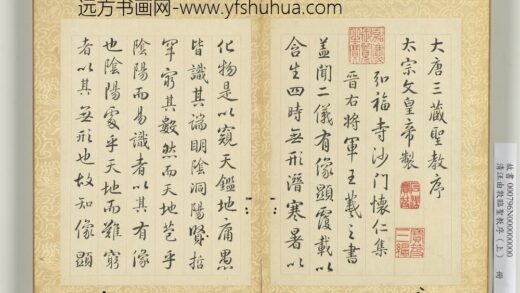 远方书画网-www.yfshuhua.com
大唐三藏聖教序
太宗文皇帝製
弘福寺沙門懷仁集
晉右將軍王羲之書
蓋聞二儀有像顯覆載以
含生四時無形潛寒暑以
化物是以窺天鑑地庸愚
皆識其端明陰洞陽賢哲
罕窮其數然而天地苞乎
陰陽而易識者以其有像
也陰陽處乎天地而難窮
者以其無形也故知像顯
故書000796N000000000
清江由敦臨聖教序(上) 冊